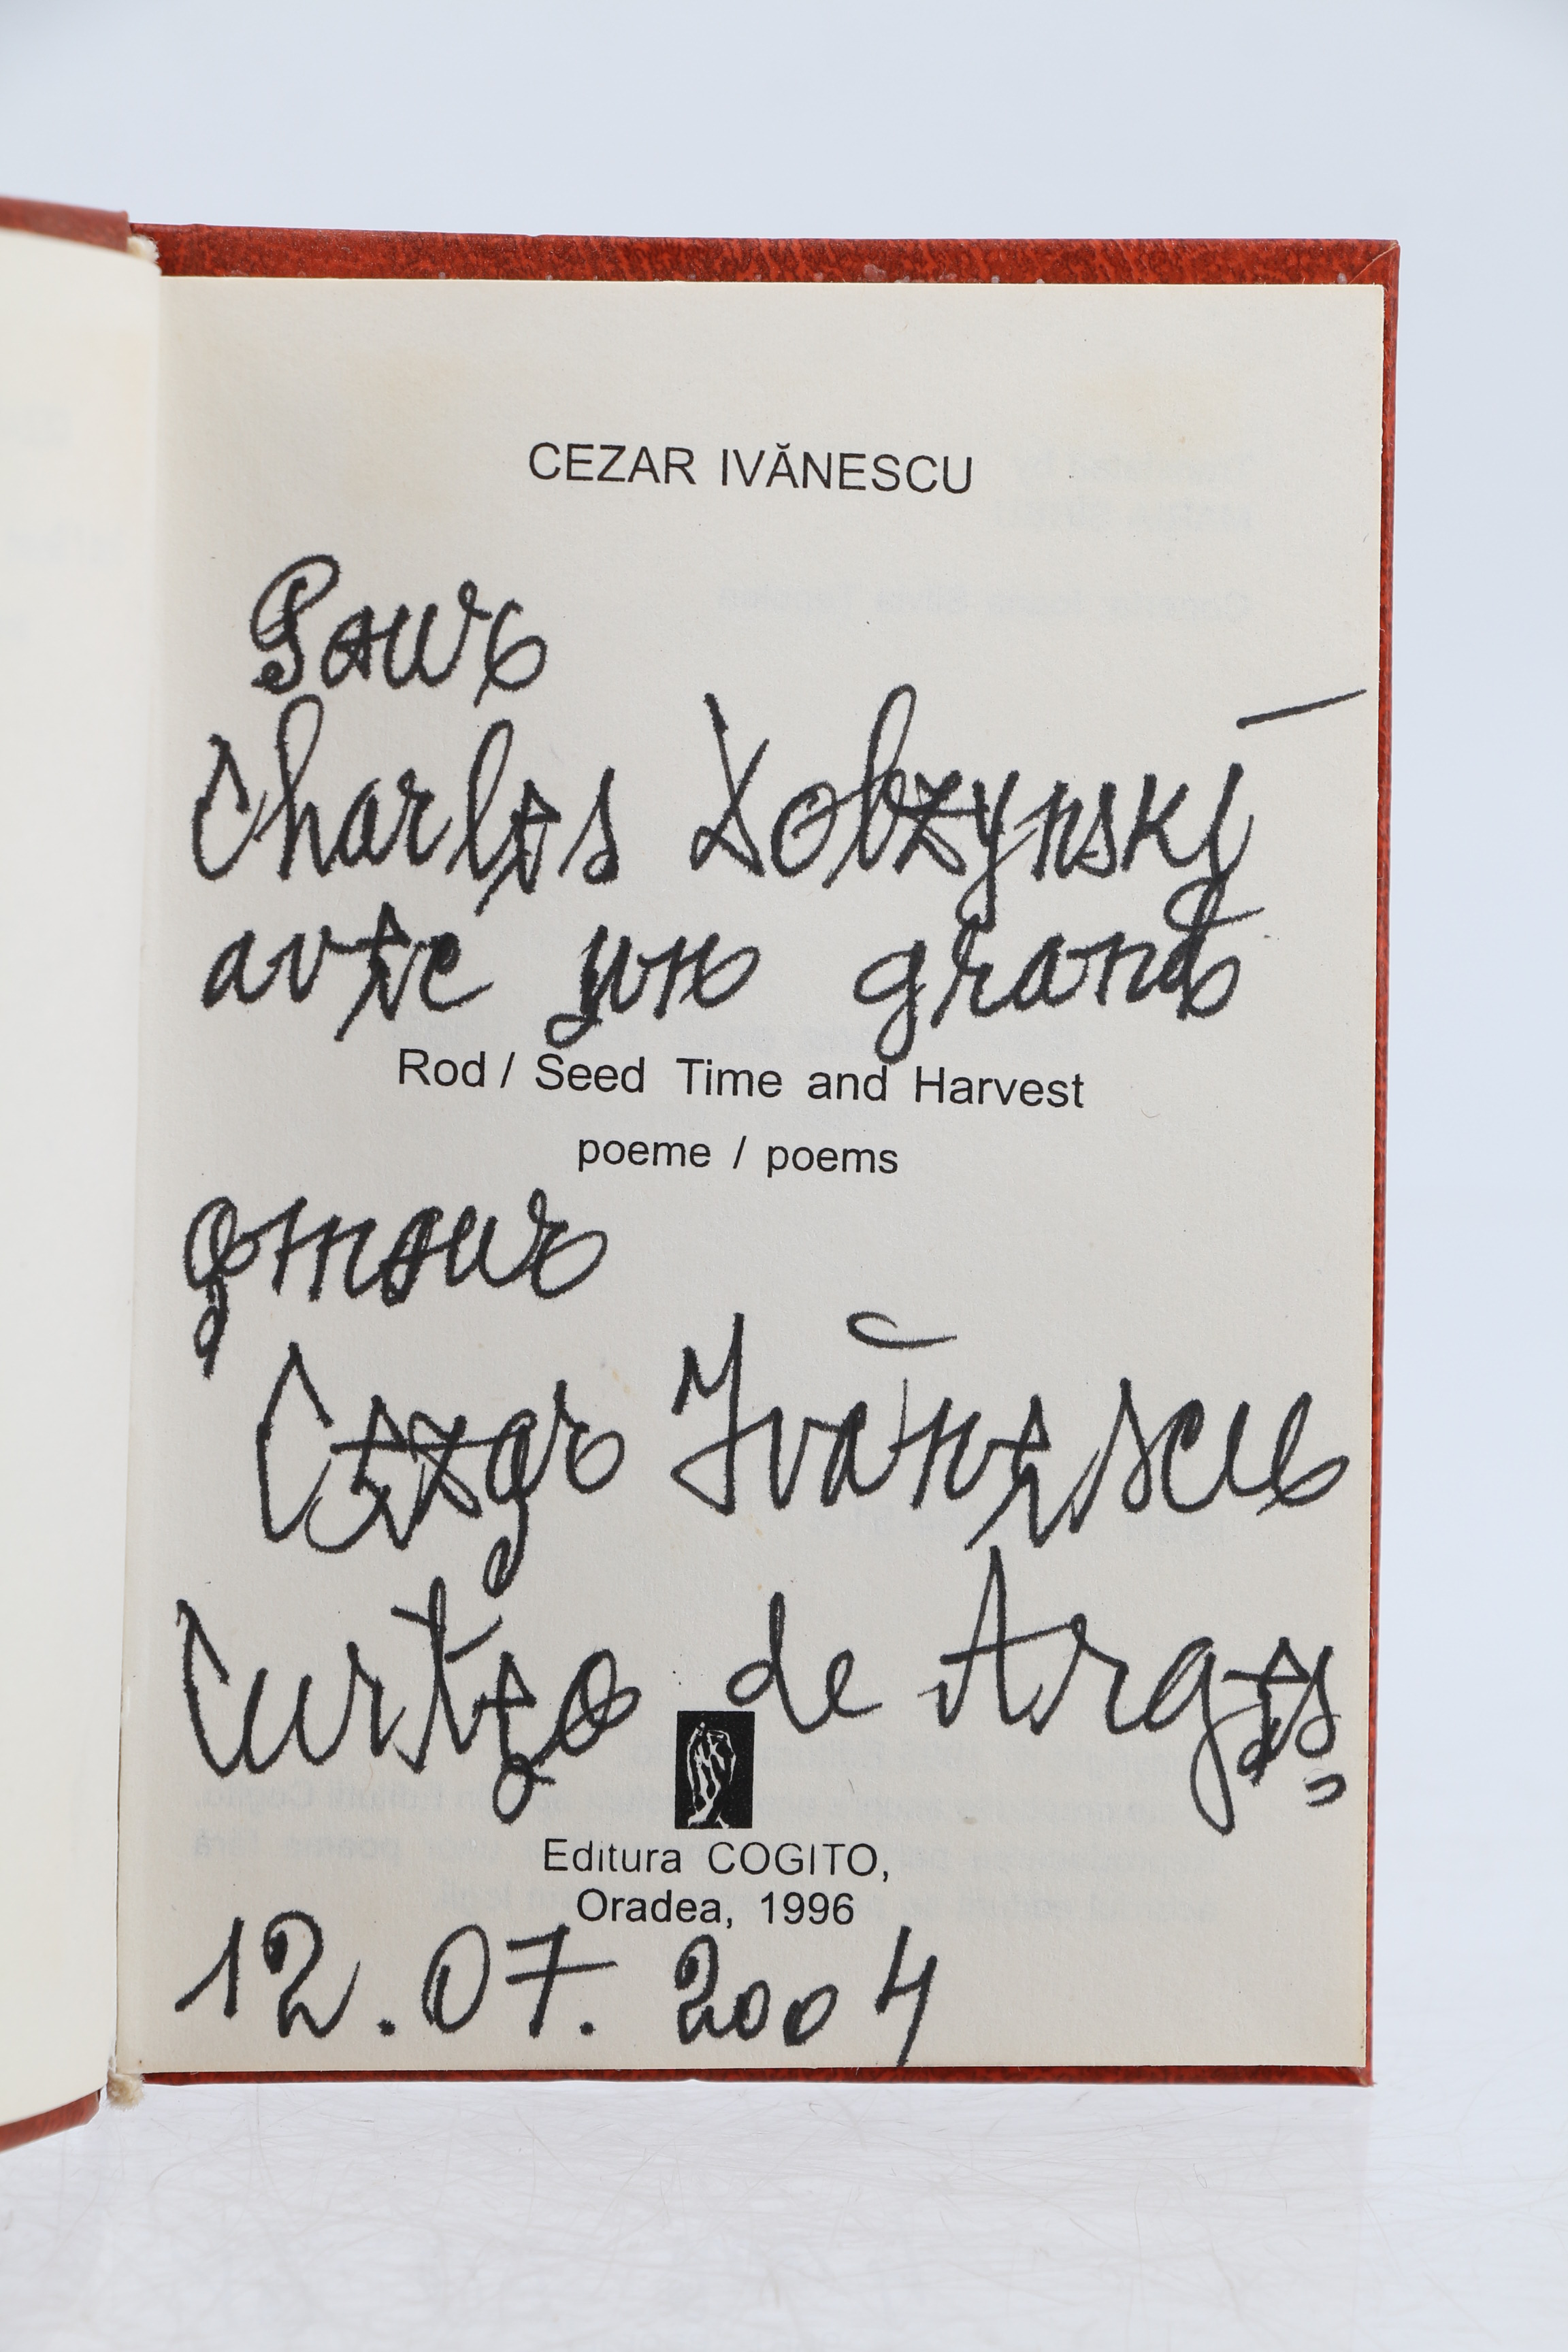 CEZAR IVĂNESCU
Pour
Charles Dobzynski
avec un grand
Rod / Seed Time and Harvest
poeme / poems
amour
Cezar Ivănescu
Curtea de Argeș
Editura COGITO,
Oradea, 1996
12.07.2004